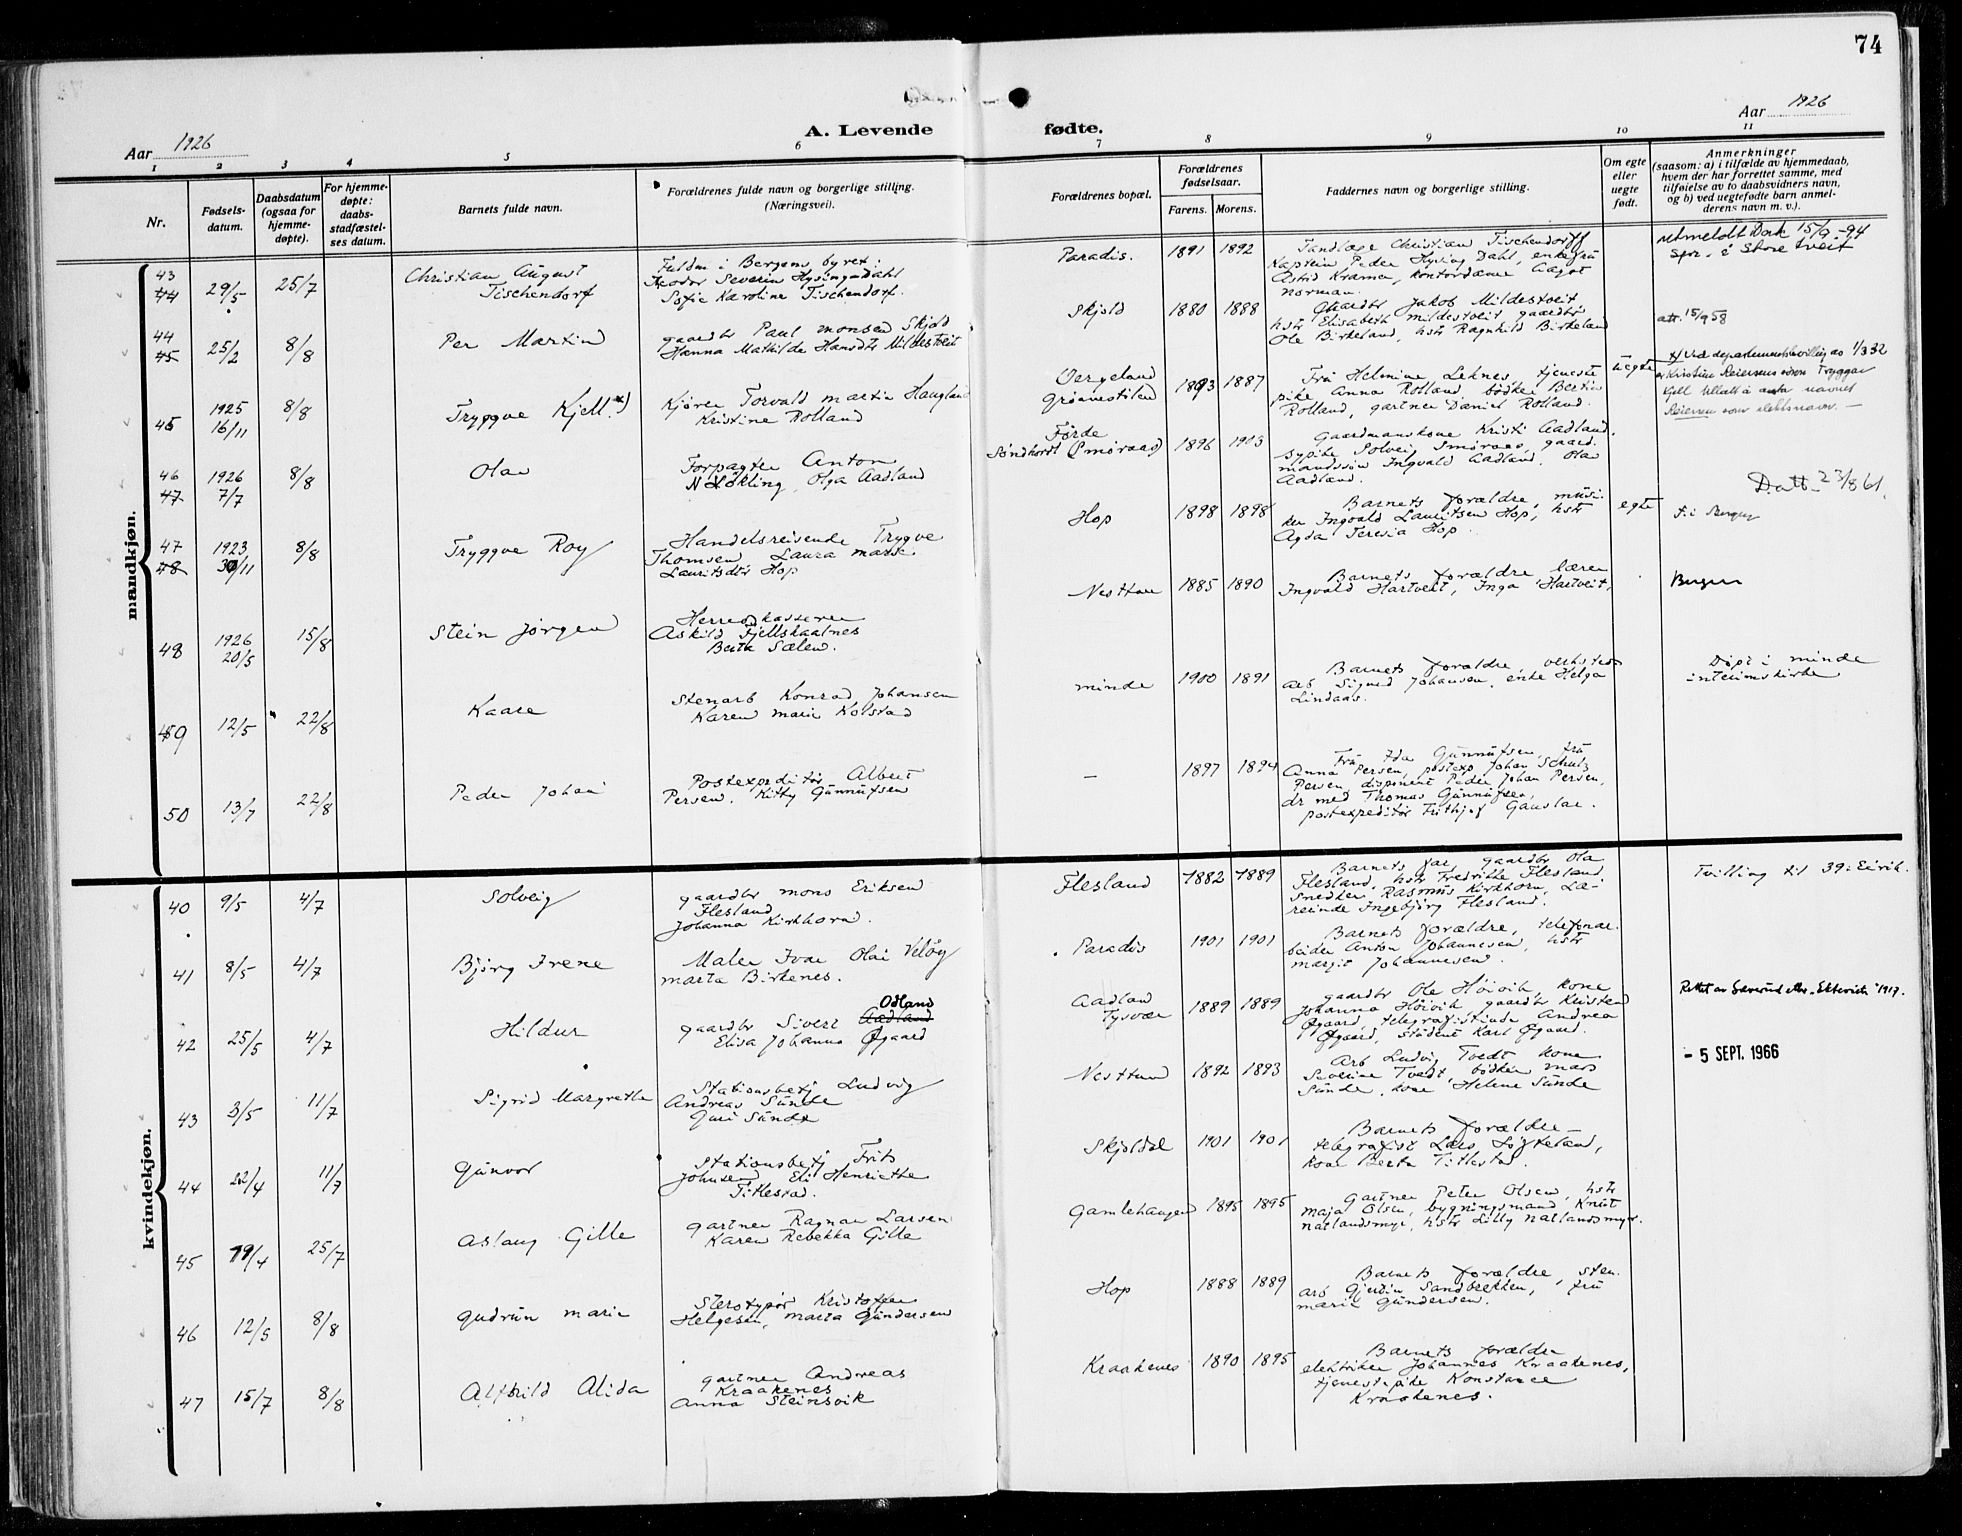 74
Aar 1926
A. Levende fødte.
Aar 1926
1 2 3 4 5 6 7 8 9 10 11
Nr.
Fødsels-
datum.
Daabsdatum
(ogsaa for
hjemme-
døpte).
For hjemme-
døpte:
daabs-
stadfæstel-
ses datum.
Barnets fulde navn.
Forældrenes fulde navn og borgerlige stilling.
(Næringsvei).
Forældrenes bopæl.
Forældrenes
fødselsaar.
Farens. Morens.
Faddernes navn og borgerlige stilling.
Om egte
eller
uegte
født.
Anmerkninger
(saasom: a) i tilfælde av hjemmedaab,
hvem der har forrettet samme, med
tilføielse av to daabsvidners navn,
og b) ved uegtefødte barn anmel-
derens navn m. v.).
mandkjøn.
43
44
29/5
25/7
Christian August
Tischendorf
Fuldm i Bergens byret:
Teodor Severin Hysing Dahl
Sofie Karoline Tischendorf.
Paradis.
1891 1892
Tandlæge Christian Tischendorff
Kaptein Peder Hysing Dahl, enkefru
Astrid Kramer, kontordame Aagot
Norman.
Utmeldt Dnk 15/9-94
Spr. i Store tveit
44
45
25/2
8/8
Per Martin
gaardbr Paul Monsen Skjold
Hanna Mathilde Hansdtr Mildestveit
Skjold
1880 1888
Gaardbr Jakob Mildestveit,
hstr Elisabeth Mildestveit gaardbr
Ole Birkeland, hstr Ragnhild Birkeland
att. 15/9 58
45
1925
16/11
8/8
Tryggve Kjell. x)
Kjører Torvald Martin Haugland
Kristine Rolland
Vergeland
Grønnestølen
1893 1887
Fru Helmine Leknes tjeneste
pike Anna Rolland bødker Bertin
Rolland, gartner Daniel Rolland.
uegte
x) Ved departementsbevilling av 1/3 32
er Kristine Reiersens sønn Tryggve
Kjell tillatt å anta navnet
Reiersen som slektsnavn. —
46
47
1926
7/7
8/8
Olav
Forpagter Anton
N Løkling, Olga Aadland
Førde
Søndhordl (Smøraas)
1896 1903
Gaardmanskone Kristi Aadland,
sypike Solveig Smøraas, gaard
mandssøn Ingvald Aadland. Olav
Aadland.
Datt. 23/8 61.
47
48
1923
30/11
8/8
Tryggve Roy
Handelsreisende Trygve
Thomsen Laura Marie
Lauritsdtr Hop
Hop
1898 1898
Barnets forældre, musi-
ker Ingvald Lauritsen Hop, hstr
Agda Teresia Hop.
egte
F. i Bergen
48
1926
20/5
15/8
Stein Jørgen
Herredskasserer
Askild Fjellskaalnes
Berta Sælen.
Nesttun
1885 1890
Barnets forældre lærer
Ingvald Hartveit, Inga Hartveit,
Bergen
49
12/5
22/8
Kaare
Stenarb Konrad Johansen
Karen Marie Kolstad
Minde
1900 1891
Barnets forældre, verksteds
arb Sigurd Johansen, enke Helga
Lindaas.
Døpt i Minde
interimskirke
50
13/7
22/8
Peder Johan
Postexpeditør Albert
Persen. Kitty Gunnufsen
—
1897 1894
Fru Ida Gunnufsen, fru
Anna Persen, postexp Johan Schulz
Persen disponent Peder Johan Persen,
dr med Thomas Gunnufsen,
postexpeditør Frithjof Gauslaa.
kvindekjøn.
40
9/5
4/7
Solveig
gaardbr Mons Eriksen
Flesland
Johanna Kirkhorn.
Flesland
1882 1889
Barnets far, gaardbr Ola
Flesland, hstr Fredrikke Flesland,
Snedker Rasmus Kirkhorn, Læ-
rerinde Ingebjørg Flesland.
Tvilling til 39: Eirik.
41
8/5
4/7
Bjørg Irene
Maler Ivar Olai Veløy
Marta Birkenes.
Paradis
1901 1901
Barnets forældre, telefonar-
beider Anton Johannesen, hstr
Margit Johannesen.
42
25/5
4/7
Hildur
gaardbr Sivert Aadland
Odland
Elisa Johanna Øgaard
Aadland
Tysvær
1889 1889
gaardbr Ole Høivik, kone
Johanna Høivik gaardbr Kristen
Øgaard, telegrafistinde Andrea
Øgaard, student Karl Øgaard.
43
3/5
11/7
Sigrid Margrethe
Stationsbetj Ludvig
Andreas Sunde
Guri Sunde
Nesttun
1892 1893
Arb Ludvig Tvedt kone
Severine Tvedt, bødker Mars
Sunde, kone Helene Sunde
- 5 SEPT. 1966
44
22/4
11/7
Gunvor
Stationsbetj Frits
Johnsen Eli Henriette
Titlestad.
Skjoldal
1901 1901
Barnets forældre —
telegrafist Lars Løfteland,
kone Berta Titlestad.
45
19/4
25/7
Aslaug Gilte
gartner Ragnar Larsen
Karen Rebekka Gilte
Gamlehaugen
1895 1895
Gartner Peter Olsen, hstr
Maja Olsen, bygningsmand Knut
Natlandsmyr, hstr Lilly Natlandsmyr.
46
12/5
8/8
Gudrun Marie
Sterotypør Kristoffer
Helgesen, Marta Gundersen
Hop
1888 1889
Barnets forældre, sten-
arb Gjerdin Sandbrekken, fru
Marie Gundersen.
47
15/7
8/8
Alfhild Alida
gartner Andreas
Kraakenes
Anna Steinsvik
Kraakenes
1890 1895
Barnets forældre
elektriker Johannes Kraakenes,
tjenestepike Konstance
Kraakenes.